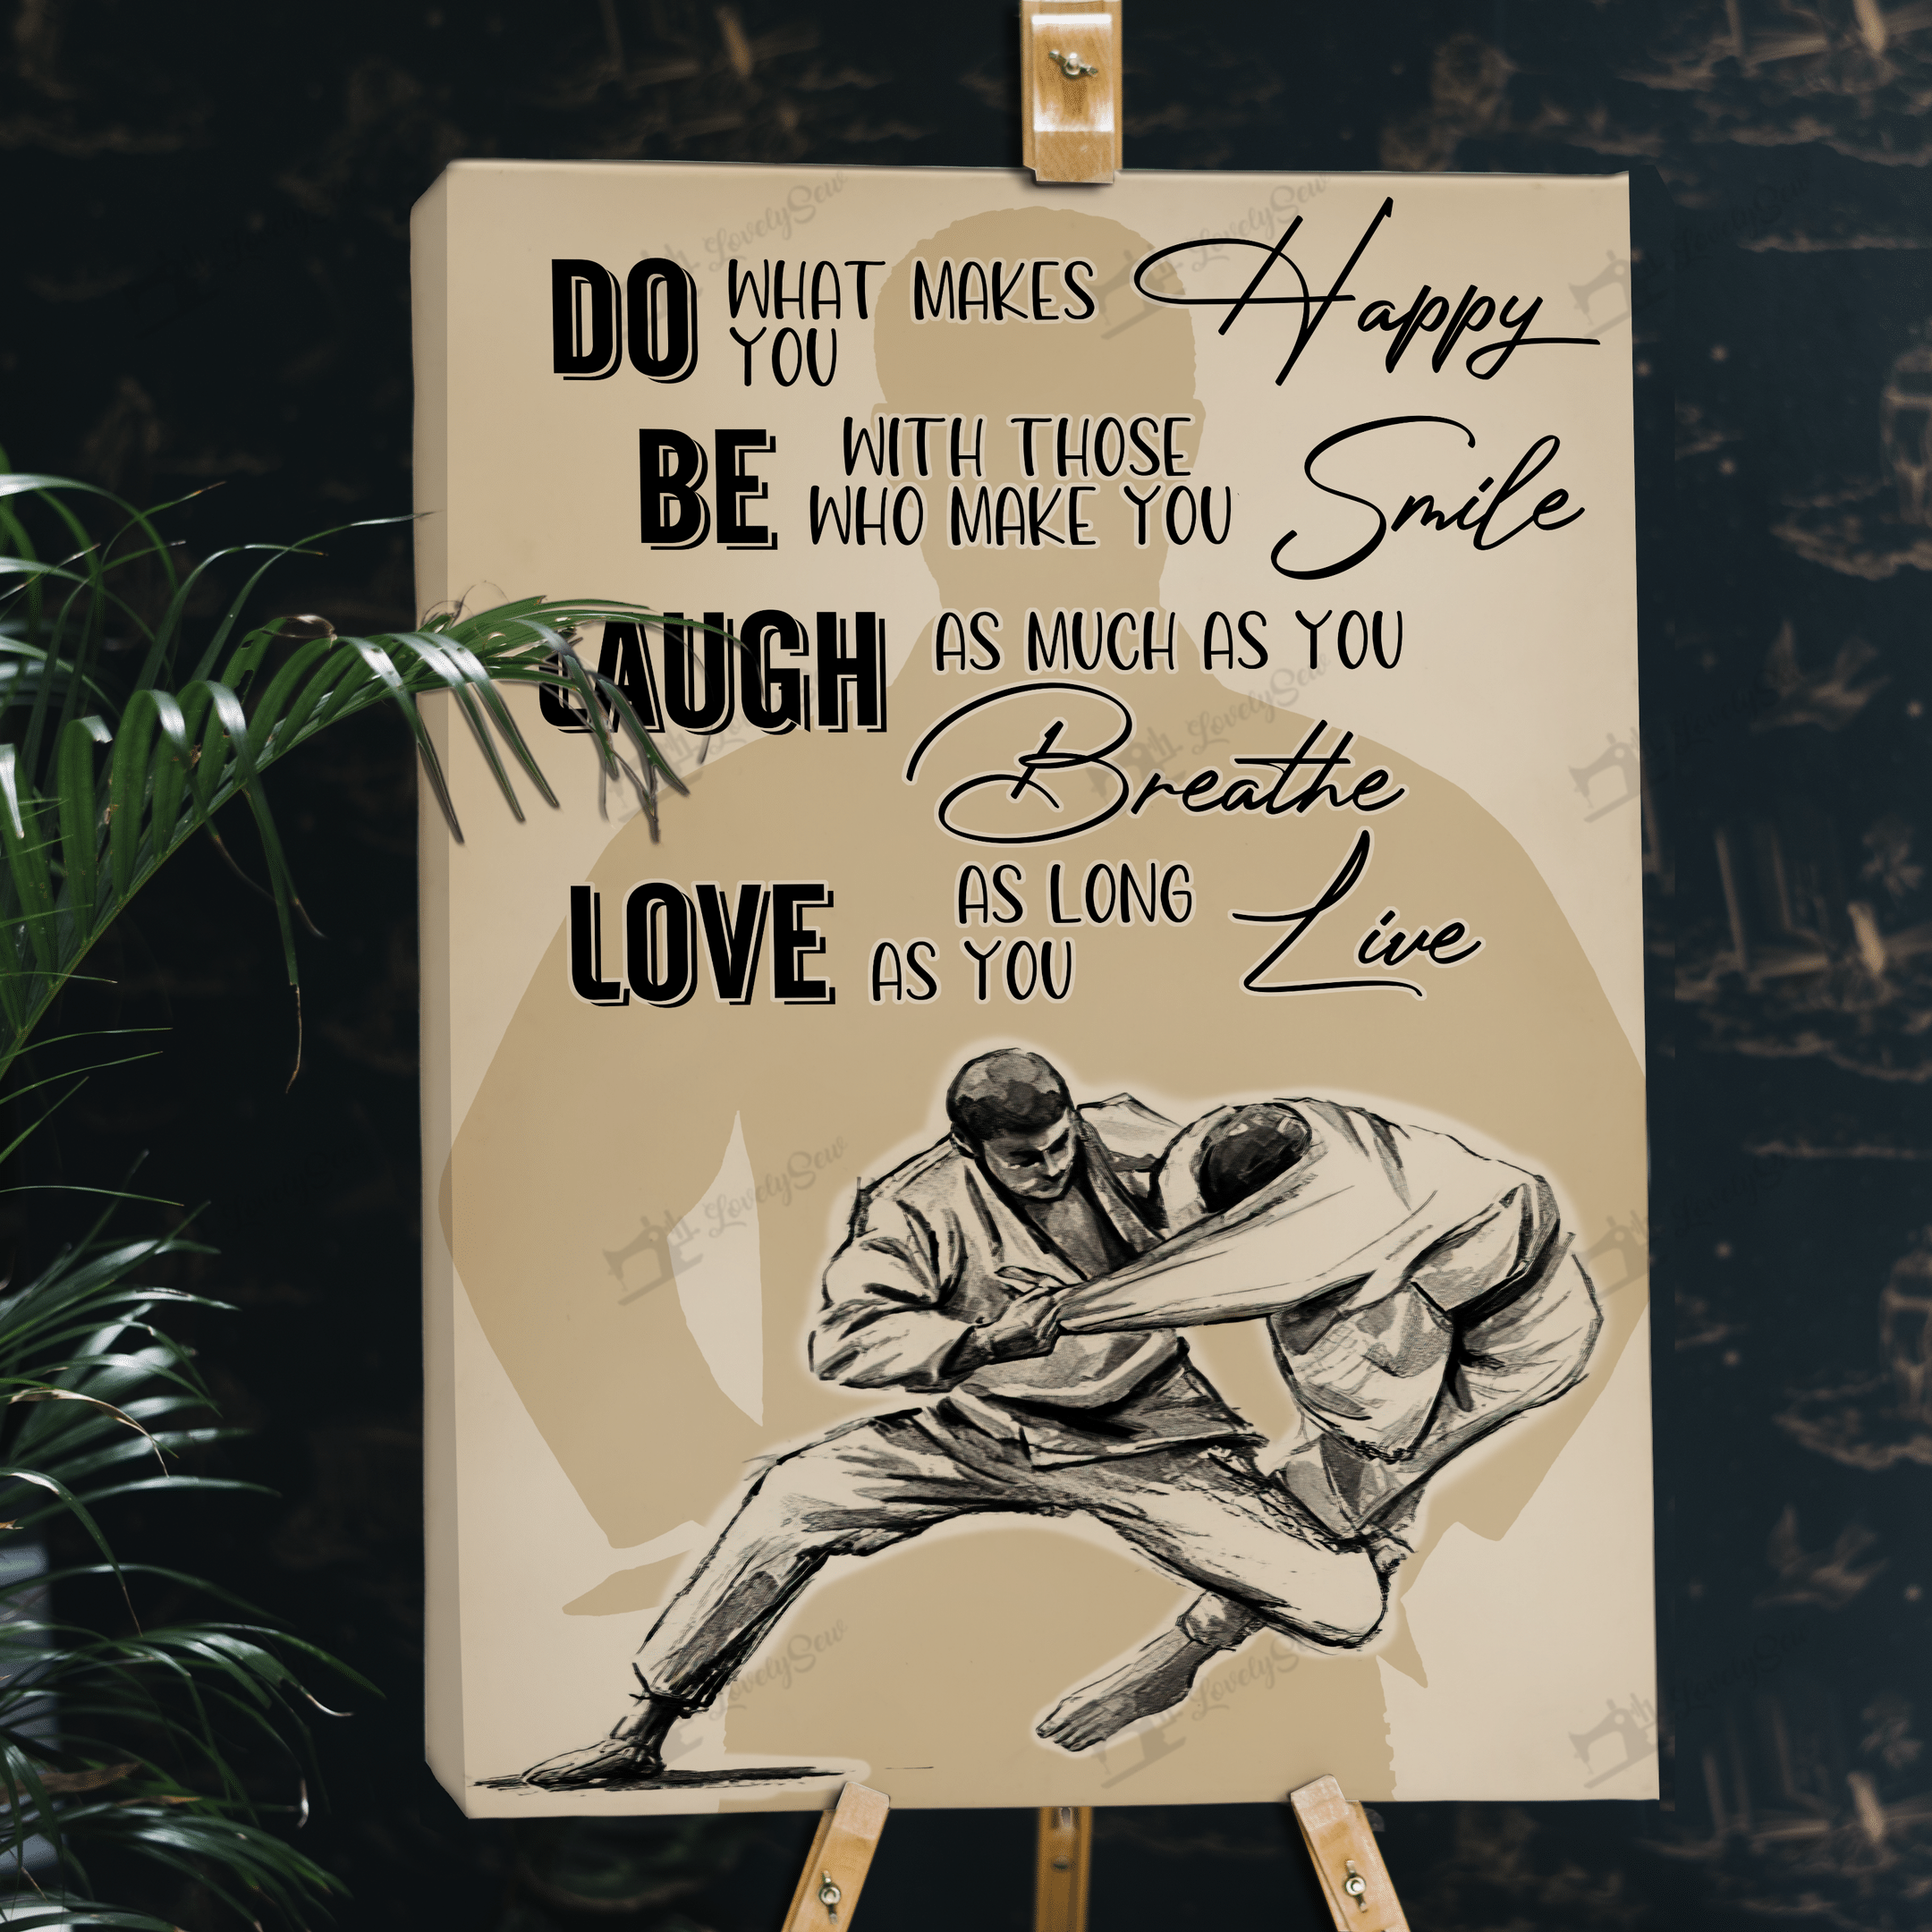 DO WHAT MAKES Happy
YOU
BE WITH THOSE Smile
WHO MAKE YOU
LAUGH AS MUCH AS YOU
Breathe
LOVE AS LONG Live
AS YOU
LovelySew
LovelySew
LovelySew
LovelySew
LovelySew
LovelySew
LovelySew